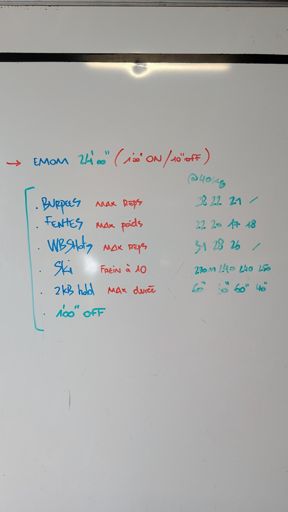 → EMOM 24'00" (1'00" ON/10" OFF)
@40kg
. BURPEES MAX REPS 22 21 /
. FENTES MAX poids 22 20 17 18
. WBShots MAX REPS 31 28 26 /
. Ski FREIN à 10 240 240 250
. 2KB hold MAX durée 60" 60" 40"
. 1'00" OFF